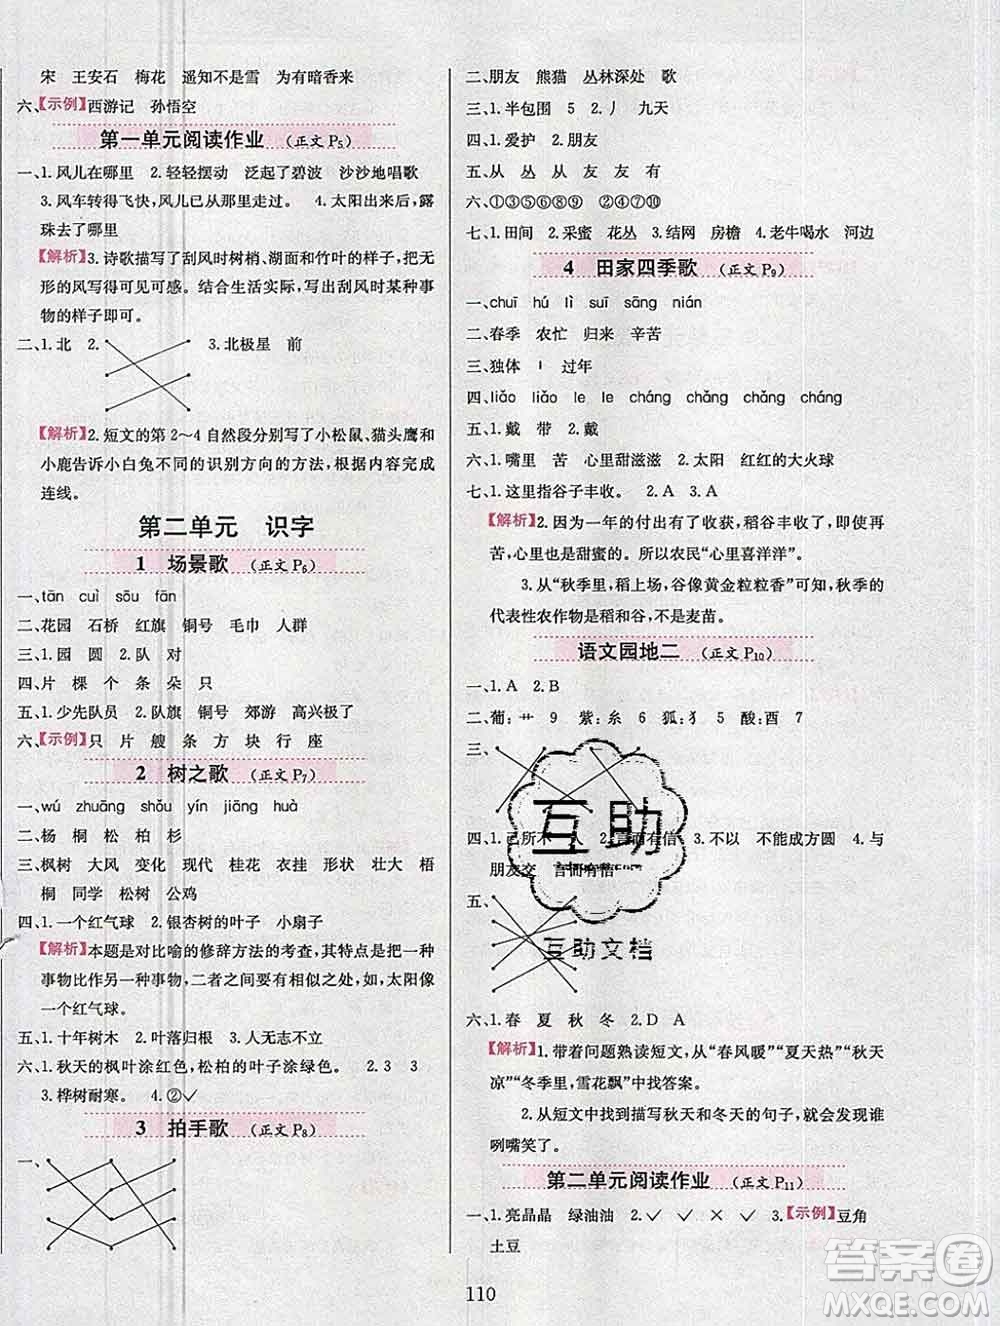 宋　王安石　梅花　遥知不是雪　为有暗香来
六、【示例】西游记　孙悟空
第一单元阅读作业　(正文P5)
一、1.风儿在哪里　2.轻轻摆动　泛起了碧波　沙沙地唱歌
3.风车转得飞快,风儿已从那里走过。　4.太阳出来后,露
珠去了哪里
【解析】3.诗歌描写了刮风时树梢、湖面和竹叶的样子,把无
形的风写得可见可感。结合生活实际,写出刮风时某种事
物的样子即可。
二、1.北　2.　3.北极星　前
【解析】2.短文的第2～4自然段分别写了小松鼠、猫头鹰和
小鹿告诉小白兔不同的识别方向的方法,根据内容完成
连线。
第二单元　识字
1　场景歌　(正文P6)
一、tān　cuì　sōu　fān
二、花园　石桥　红旗　铜号　毛巾　人群
三、1.园　圆　2.队　对
四、片　棵　个　条　朵　只
五、1.少先队员　2.队旗　铜号　郊游　高兴极了
六、【示例】只　片　艘　条　方　块　行　座
2　树之歌　(正文P7)
一、wú　zhuāng　shǒu　yín　jiāng　huà
二、杨　桐　松　柏　杉
三、枫树　大风　变化　现代　桂花　衣挂　形状　壮大　梧
桐　同学　松树　公鸡
四、1.一个红气球　2.银杏树的叶子　小扇子
【解析】本题是对比喻的修辞方法的考查,其特点是把一种
事物比作另一种事物,二者之间要有相似之处,如太阳像
一个红气球。
五、1.十年树木　2.叶落归根　3.人无志不立
六、1.秋天的枫叶涂红色,松柏的叶子涂绿色。　2.3　3
3.桦树耐寒。　4.②✓
3　拍手歌　(正文P8)
一、
二、朋友　熊猫　丛林深处　歌
三、1.半包围　5　2.丿　九天
四、1.爱护　2.朋友
五、从　丛　从　友　友　有
六、①③⑤⑧⑨　②④⑥⑦⑩
七、1.田间　2.采蜜　花丛　3.结网　房檐　4.老牛喝水　河边
4　田家四季歌　(正文P9)
一、chuī　hú　lì　suī　sāng　nián
二、春季　农忙　归来　辛苦
三、独体　丨　过年
四、liǎo　liǎo　le　le　cháng　chǎng　cháng　chǎng
五、戴　带　戴
六、1.嘴里　苦　心里甜滋滋　2.太阳　红红的大火球
七、1.这里指谷子丰收。　2.A　3.A
【解析】2.因为一年的付出有了收获,稻谷丰收了,即使辛
苦,心里也是甜蜜的。所以农民“心里喜洋洋”。
3.从“秋季里,稻上场,谷像黄金粒粒香”可知,秋季的
代表性农作物是稻和谷,不是麦苗。
语文园地二　(正文P10)
一、1.A　2.B
二、葡:艹　9　紫:糸　6　狐:犭　5　酸:酉　7
三、
四、1.己所不　人　2.言而有信　3.不以　不能成方圆　4.与
朋友交　言而有信
五、
六、1.春　夏　秋　冬　2.D　A
【解析】1.带着问题熟读短文,从“春风暖”“夏天热”“秋天
凉”“冬季里,雪花飘”中找答案。
2.从短文中找到描写秋天和冬天的句子,就会发现谁
咧嘴笑了。
第二单元阅读作业　(正文P11)
一、1.亮晶晶　绿油油　2.✓　✓　×　✓　3.【示例】豆角
土豆
110
互助
互助文档
答案圈
MXQE.COM